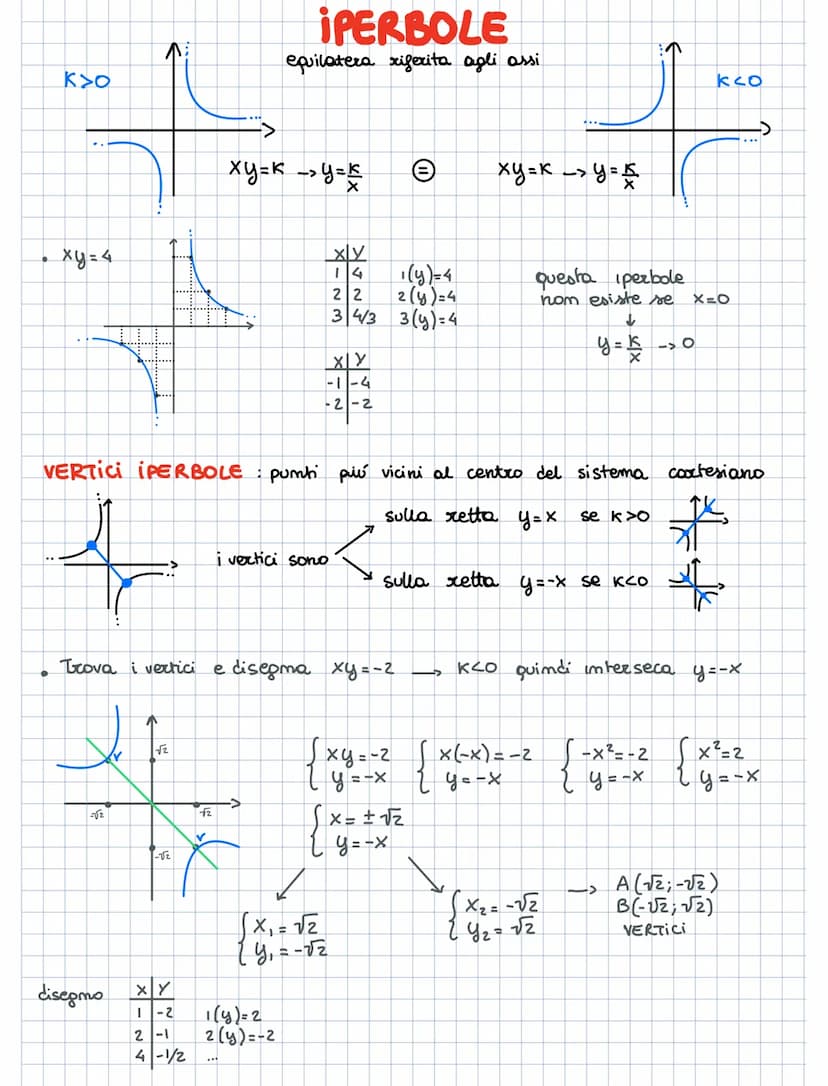 iPERBOLE
equilatera riferita agli assi
K>0
K<0
xy=K → y=K/x
=
xy=K → y=K/x
• xy=4
x|y
1|4
2|2
3|4/3
1(y)=4
2(y)=4
3(y)=4
questa iperbole
non esiste se x=0
↓
y=K/x → 0
x|y
-1|-4
-2|-2
VERTICI iPERBOLE : punti piú vicini al centro del sistema cartesiano
i vertici sono
sulla retta y=x se K>0
sulla retta y=-x se K<0
• Trova i vertici e disegna xy=-2 → K<0 quindi interseca y=-x
V
√2
-√2
√2
V
-√2
{ xy=-2
{ y=-x
{ x(-x)=-2
{ y=-x
{ -x²=-2
{ y=-x
{ x²=2
{ y=-x
{ x=±√2
{ y=-x
{ x₁=√2
{ y₁=-√2
{ x₂=-√2
{ y₂=√2
→ A(√2;-√2)
B(-√2;√2)
VERTICI
disegno
x|y
1|-2
2|-1
4|-1/2
1(y)=2
2(y)=-2
...